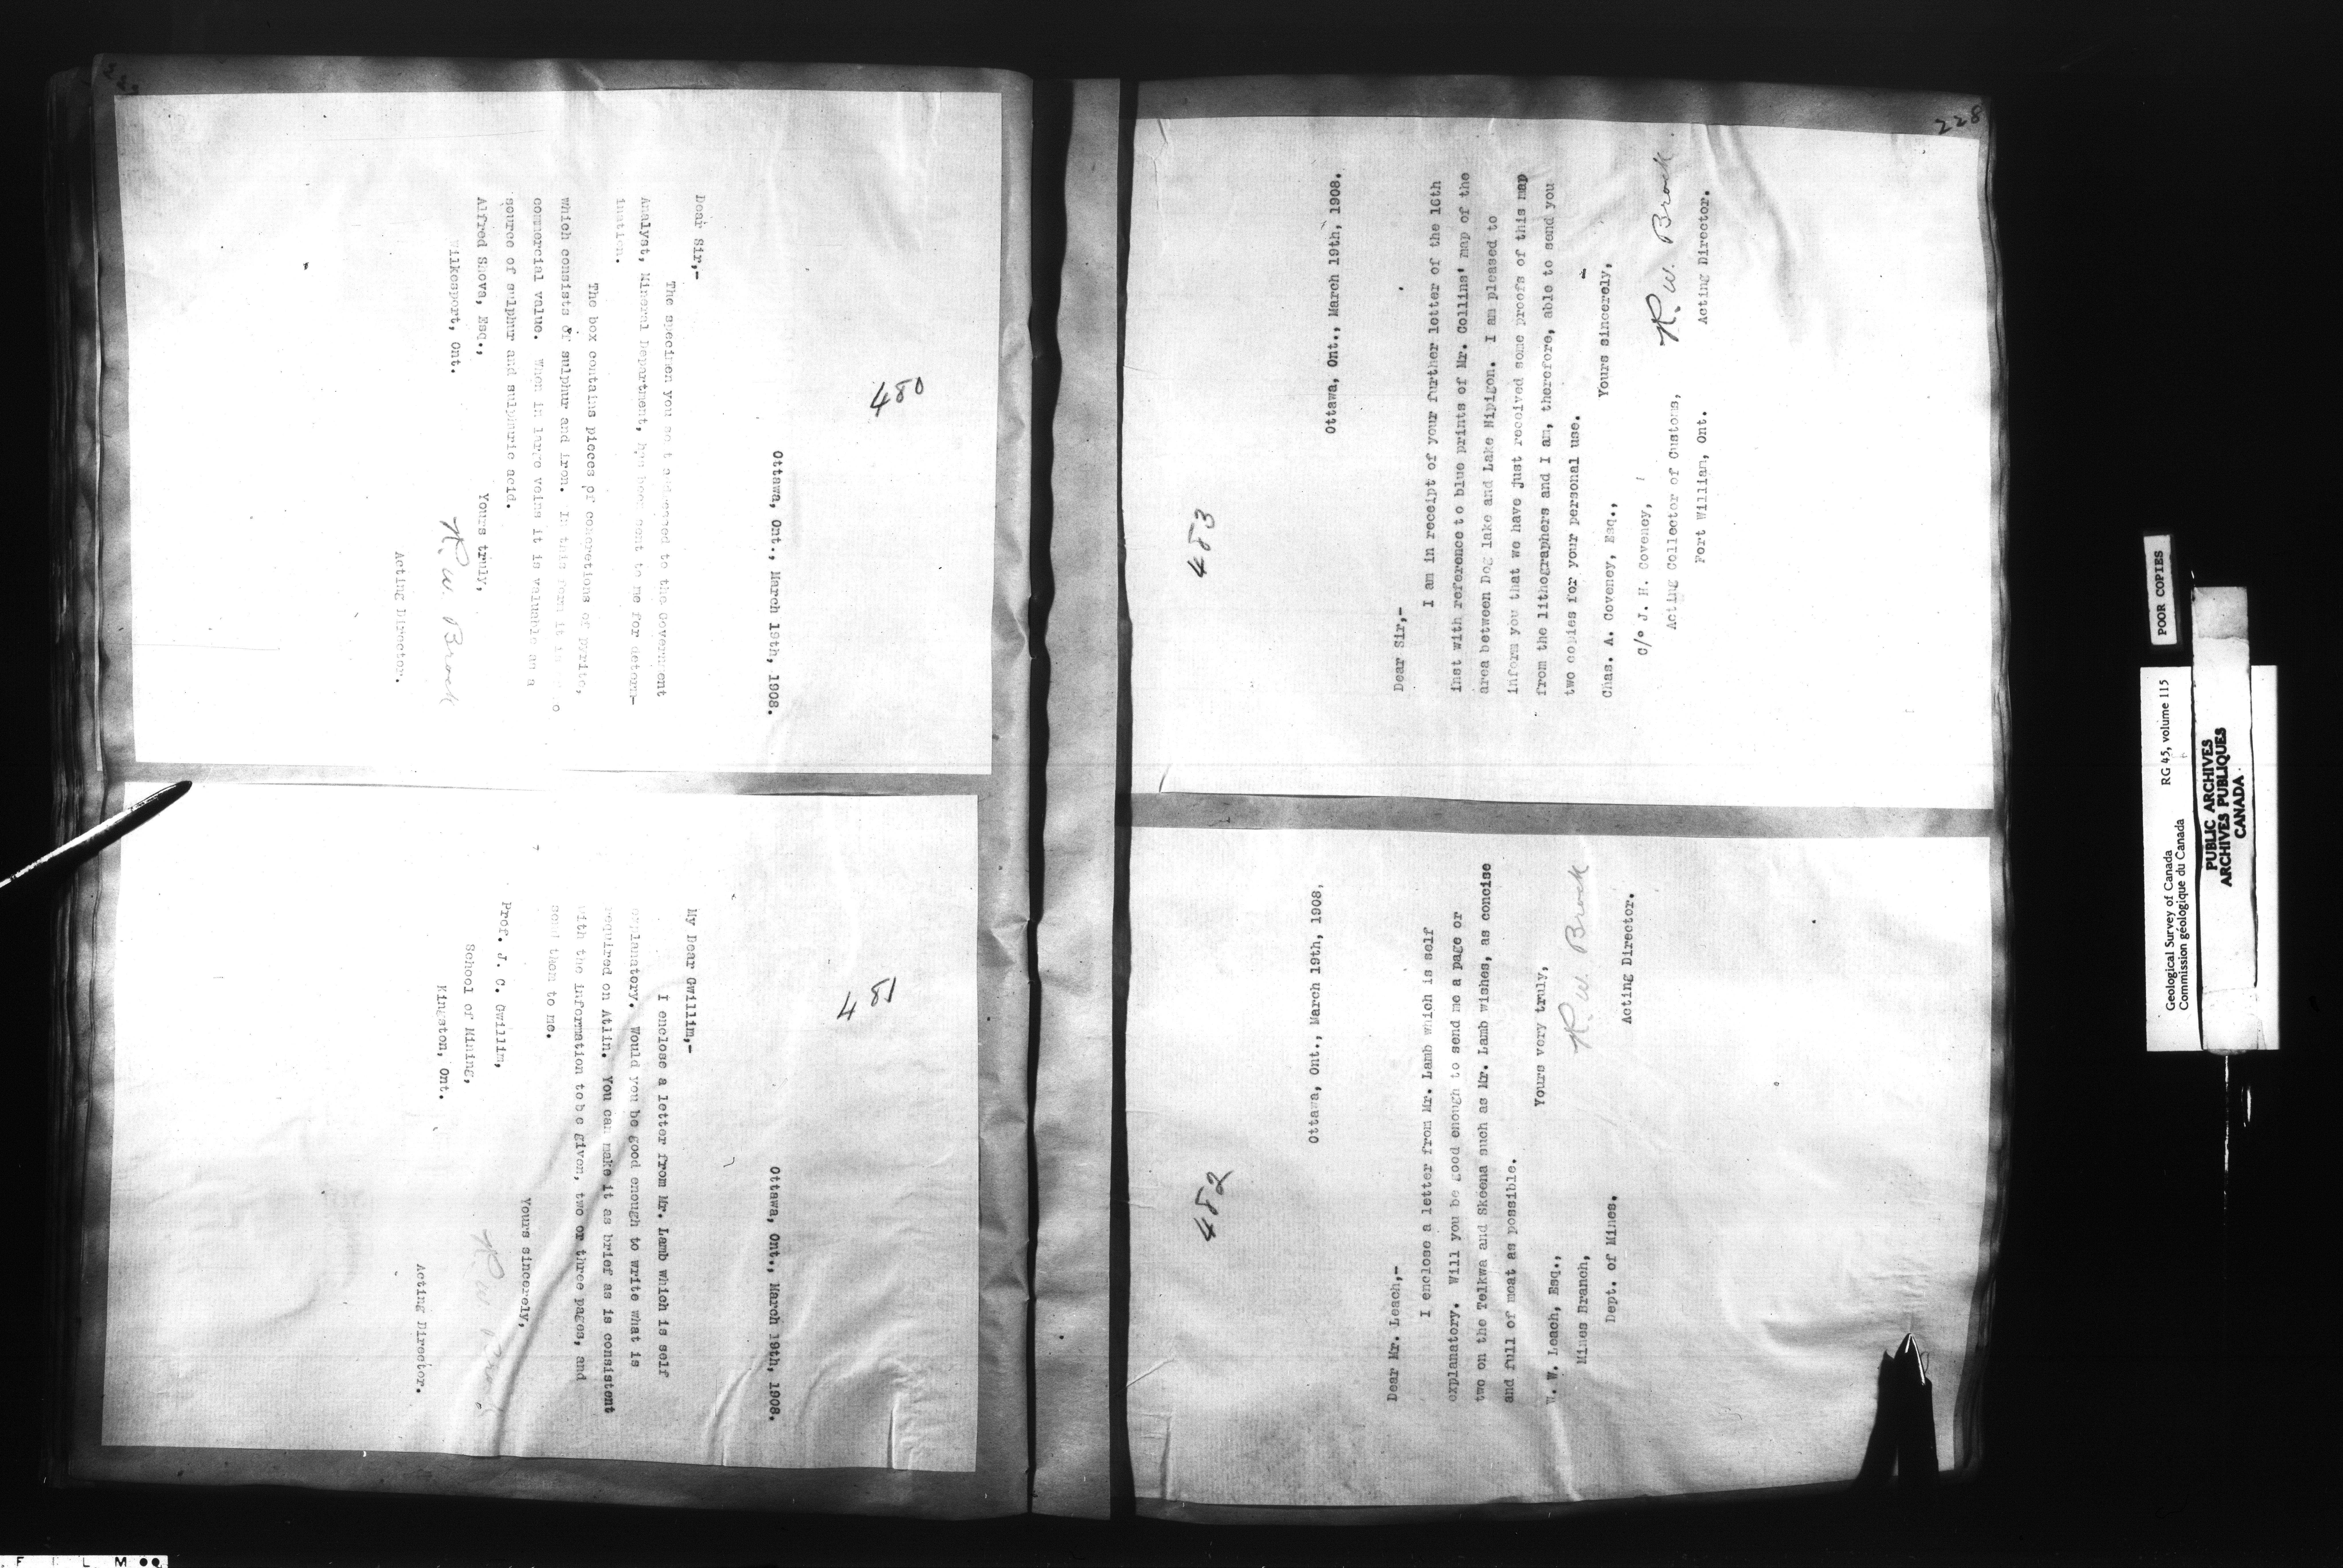 480
Ottawa, Ont., March 19th, 1908.
Dear Sir,-
The specimen you sent addressed to the Government
Analyst, Mineral Department, has been sent to me for determ-
ination.
The box contains pieces of concretions of pyrite,
which consists of sulphur and iron. In this form it is no
commercial value. When in large veins it is valuable as a
source of sulphur and sulphuric acid.
Yours truly,
Alfred Shova, Esq.,
Wilkesport, Ont.
R. W. Brock
Acting Director.
481
Ottawa, Ont., March 19th, 1908.
My Dear Gwillim,-
I enclose a letter from Mr. Lamb which is self
explanatory. Would you be good enough to write what is
required on Atlin. You can make it as brief as is consistent
with the information to be given, two or three pages, and
send them to me.
Yours sincerely,
Prof. J. C. Gwillim,
School of Mining,
Kingston, Ont.
R. W. Brock
Acting Director.
482
Ottawa, Ont., March 19th, 1908,
Dear Mr. Leach,-
I enclose a letter from Mr. Lamb which is self
explanatory. Will you be good enough to send me a page or
two on the Telkwa and Skeena such as Mr. Lamb wishes, as concise
and full of meat as possible.
Yours very truly,
R. W. Brock
Acting Director.
W. W. Leach, Esq.,
Mines Branch,
Dept. of Mines.
228
483
Ottawa, Ont., March 19th, 1908.
Dear Sir,-
I am in receipt of your further letter of the 16th
inst with reference to blue prints of Mr. Collins' map of the
area between Dog lake and Lake Nipigon. I am pleased to
inform you that we have just received some proofs of this map
from the lithographers and I am, therefore, able to send you
two copies for your personal use.
Yours sincerely,
R. W. Brock
Acting Director.
Chas. A. Coveney, Esq.,
C/o J. H. Coveney,
Acting Collector of Customs,
Fort William, Ont.
POOR COPIES
Geological Survey of Canada RG 45, volume 115
Commission géologique du Canada
PUBLIC ARCHIVES
ARCHIVES PUBLIQUES
CANADA